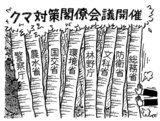 クマ対策関係会議開催
総務省
防衛省
文科省
林野庁
環境省
国交省
農水省
警察庁